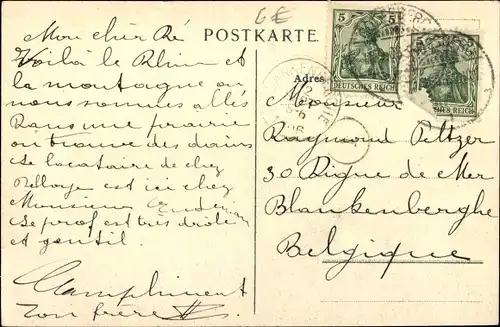 Mon cher Ré
Voilà le Rhin et
la montagne ou
nous sommes allés
Dans une prairie
on trouve des
le locataire de chez
est ici chez
Monsieur
Le prof est très drôle
et gentil.
Compliment
ton frère
6E
POSTKARTE.
5 5
DEUTSCHES REICH
CHES REICH
Adres
Monsieur
Raymond Peltzer
30 Digue de Mer
Blankenberghe
Belgique